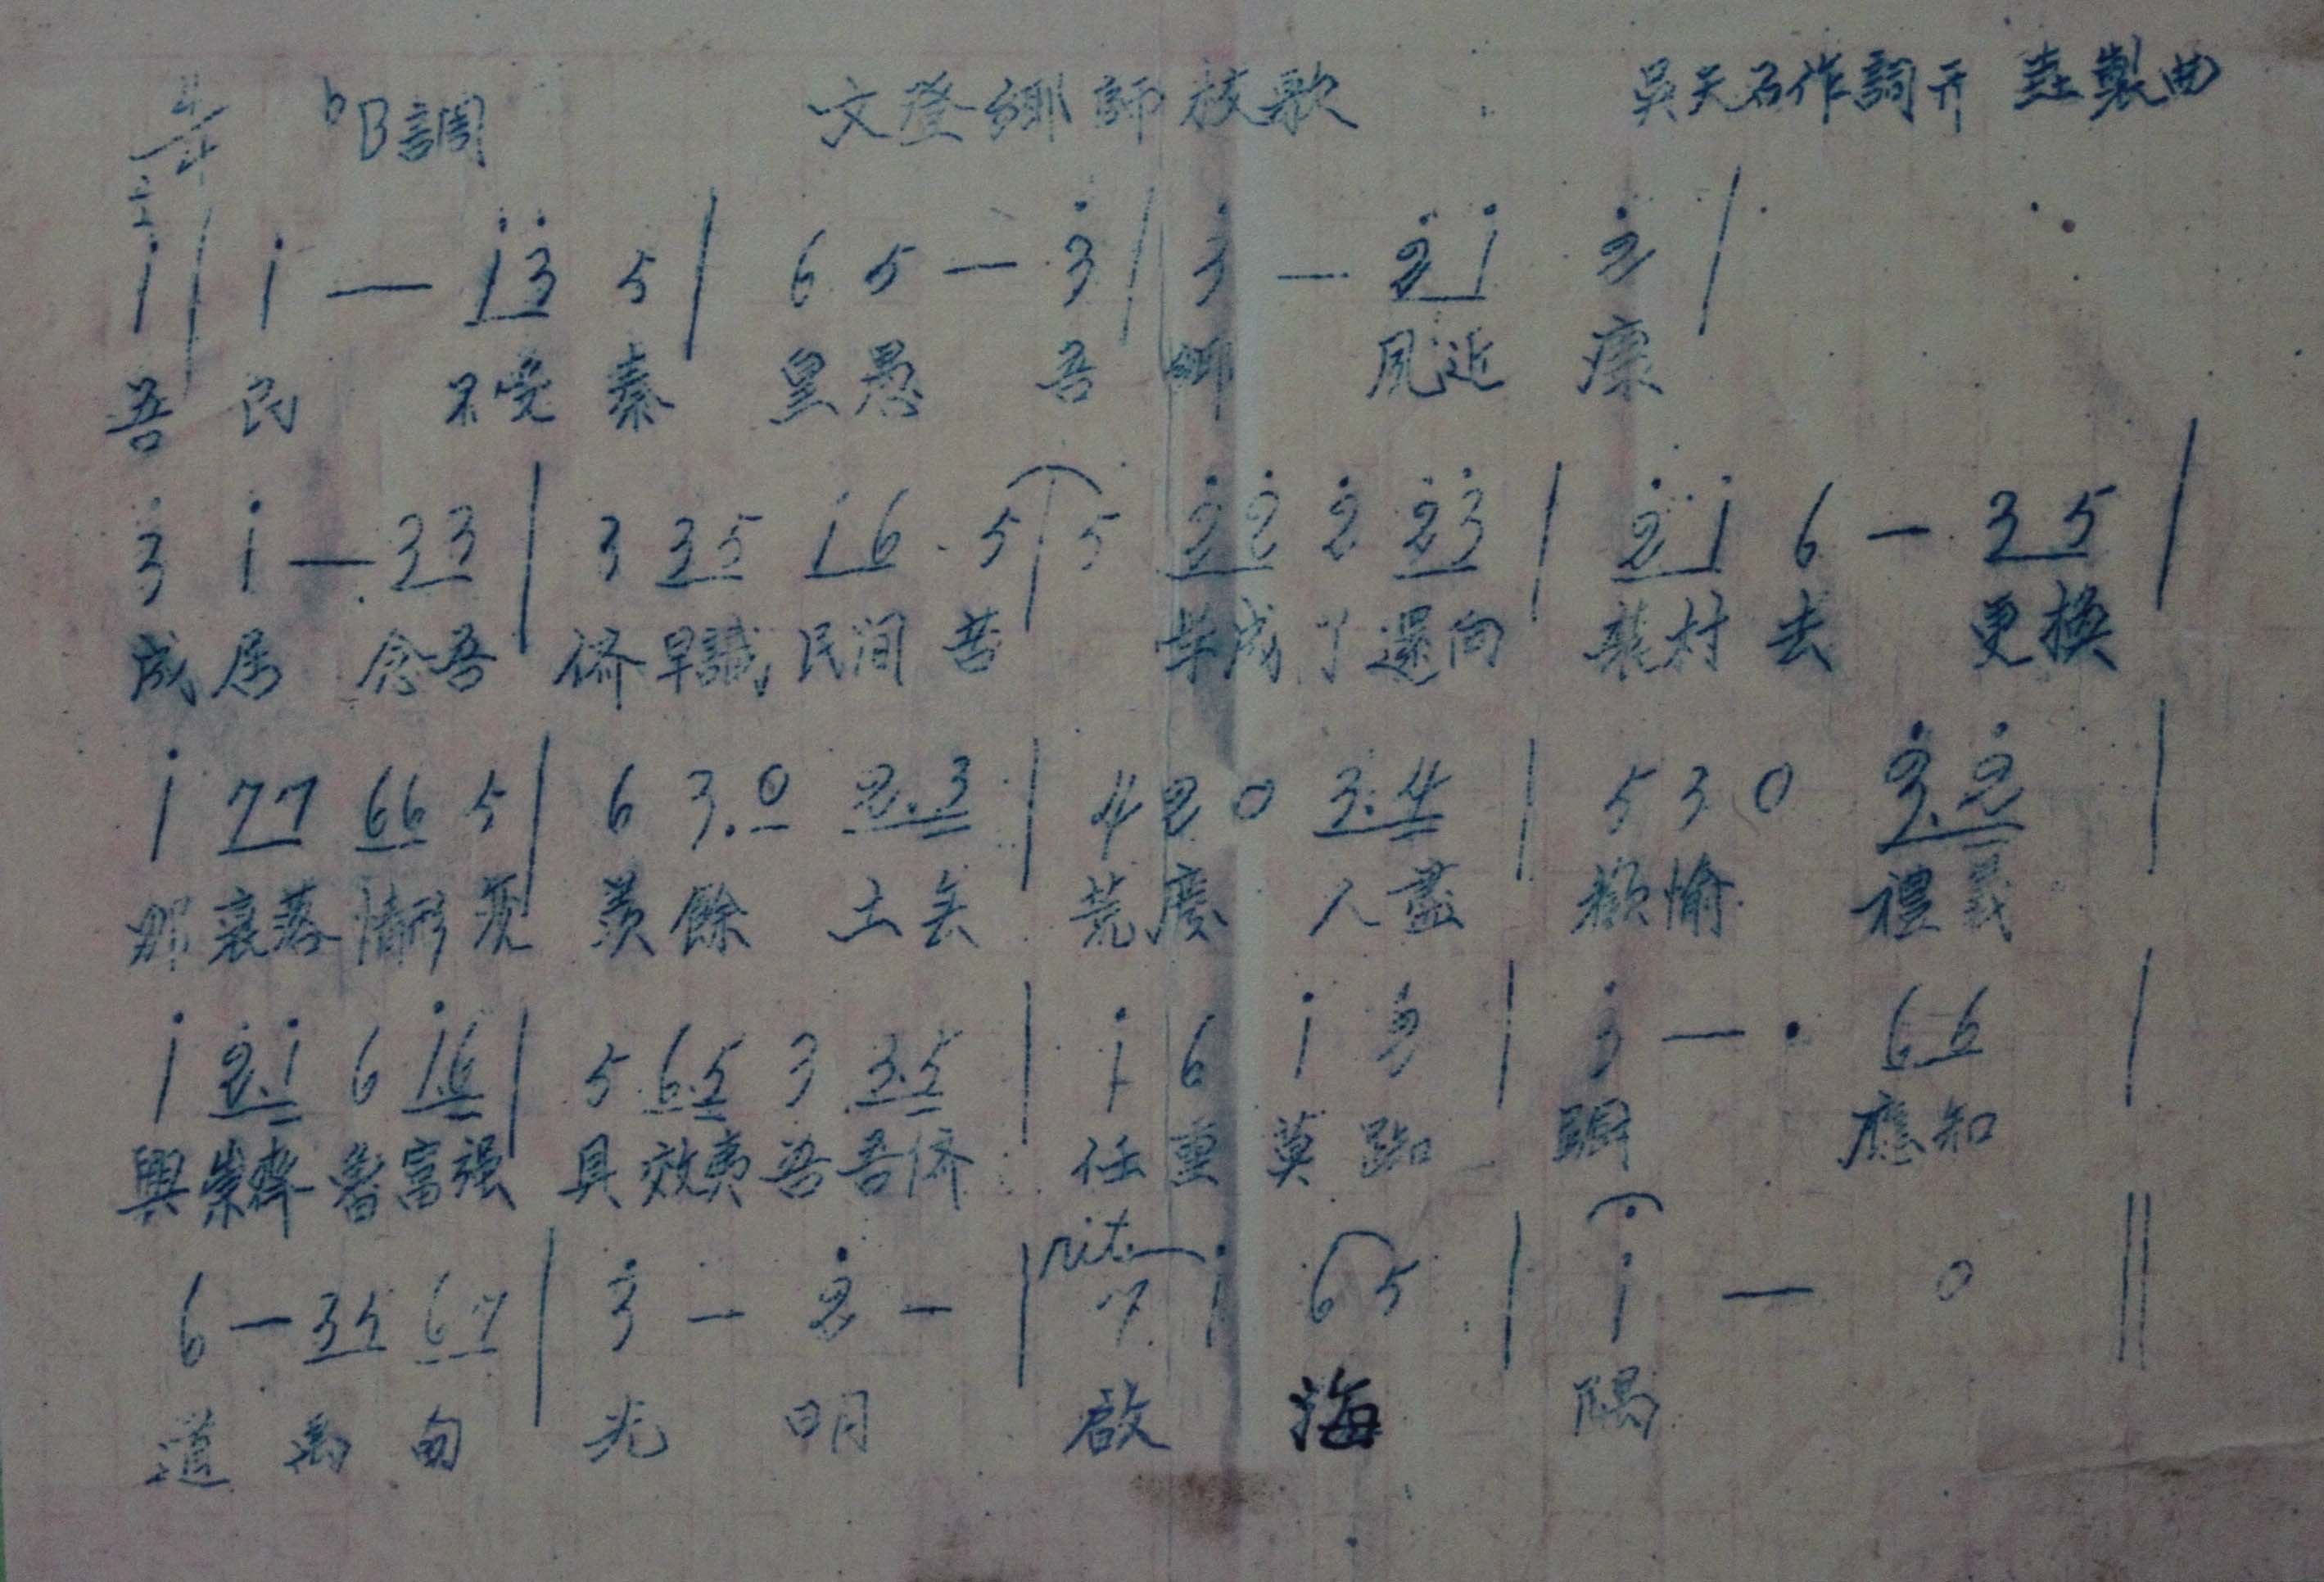 4/4 ♭B調 文登鄉師校歌 吳天石作詞 製曲
i | i — i3 5 | 6 5 — 3 | 3 — 2i 2 |
吾 民 不受 秦 皇愚 吾 鄉 夙近 康
3 i — 33 | 3 35 i6 5 | 5 22 2 23 | 2i 6 — 35 |
成居 念吾 儕早識民間 苦 学成了還向 村去 更換
i 77 66 5 | 6 3.0 2.3 | 4 2 0 3.4 | 5 3 0 3.2 |
那衰落情形 羨餘 土無 荒廢 人盡 歡愉 禮義
i 2.i 6 i.6 | 5 6.5 3 3.5 | i 6 i 3 | 3 — · 66 |
興崇齊魯富强 具效夷吾吾儕 任重莫踟 躕 應知
6 — 35 67 | 3 — 2 — | rit. 7 i 65 | i — 0 ‖
道禹甸 光 明 啟 海 隅